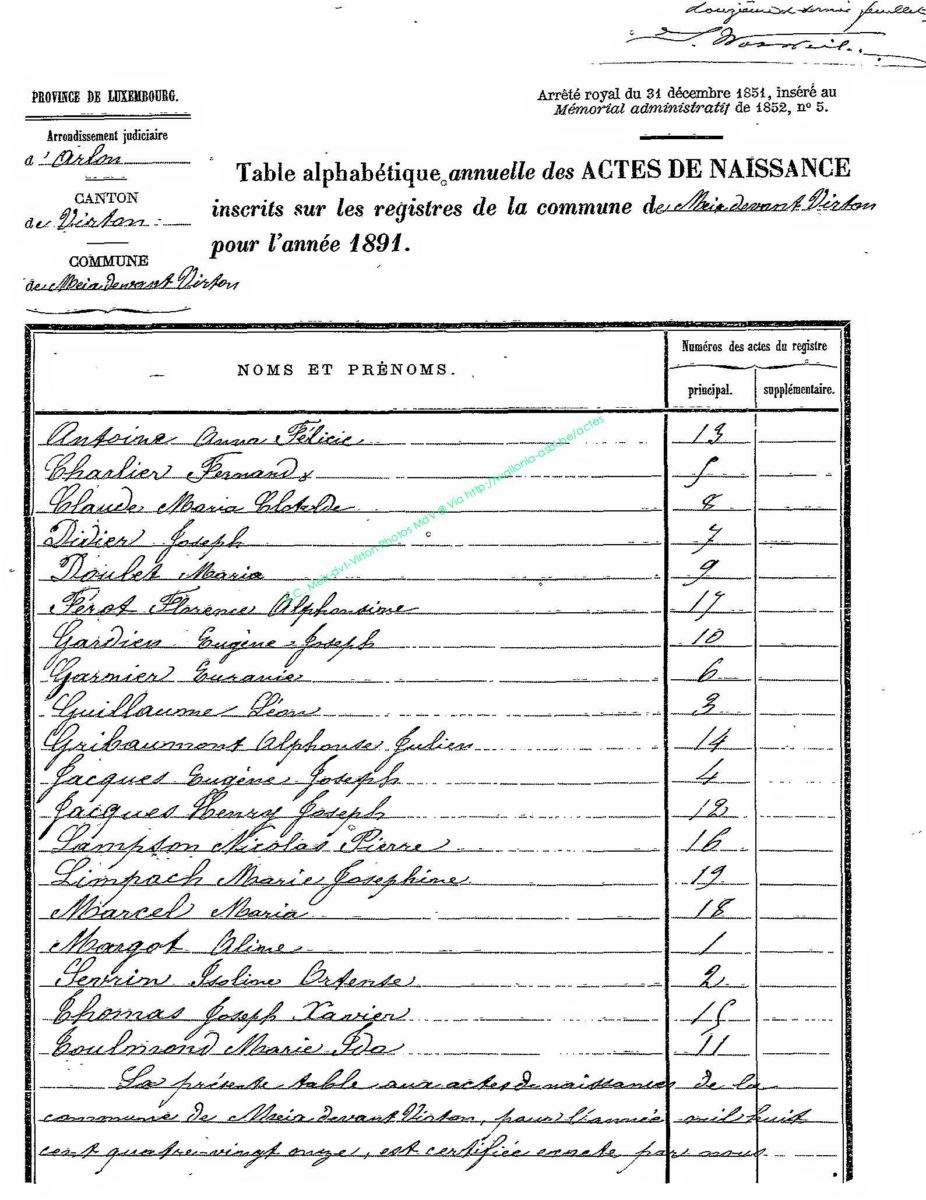 Douzième et dernier feuillet
PROVINCE DE LUXEMBOURG.
Arrondissement judiciaire
d'Arlon
CANTON
de Virton
COMMUNE
de Meix devant Virton
Arrêté royal du 31 décembre 1851, inséré au
Mémorial administratif de 1852, n° 5.
Table alphabétique annuelle des ACTES DE NAISSANCE
inscrits sur les registres de la commune de Meix devant Virton
pour l'année 1891.
NOMS ET PRÉNOMS.
Numéros des actes du registre
principal. supplémentaire.
Antoine Anna Félicie 13
Charlier Fernand 5
Claude Maria Clotilde 8
Didier Joseph 7
Doulet Maria 9
Férot Florence Alphonsine 17
Gardien Eugène-Joseph 10
Garnier Euranie 6
Guillaume Léon 3
Gribaumont Alphonse Julien 14
Jacques Eugène Joseph 4
Jacques Henry Joseph 12
Lampson Nicolas Pierre 16
Limpach Marie Josephine 19
Marcel Maria 18
Margot Aline 1
Sevrin Isoline Ortense 2
Thomas Joseph Xavier 15
Toulmond Marie Ida 11
La présente table aux actes de naissances de la
commune de Meix devant Virton, pour l'année mil huit
cent quatre-vingt onze, est certifiée exacte par nous